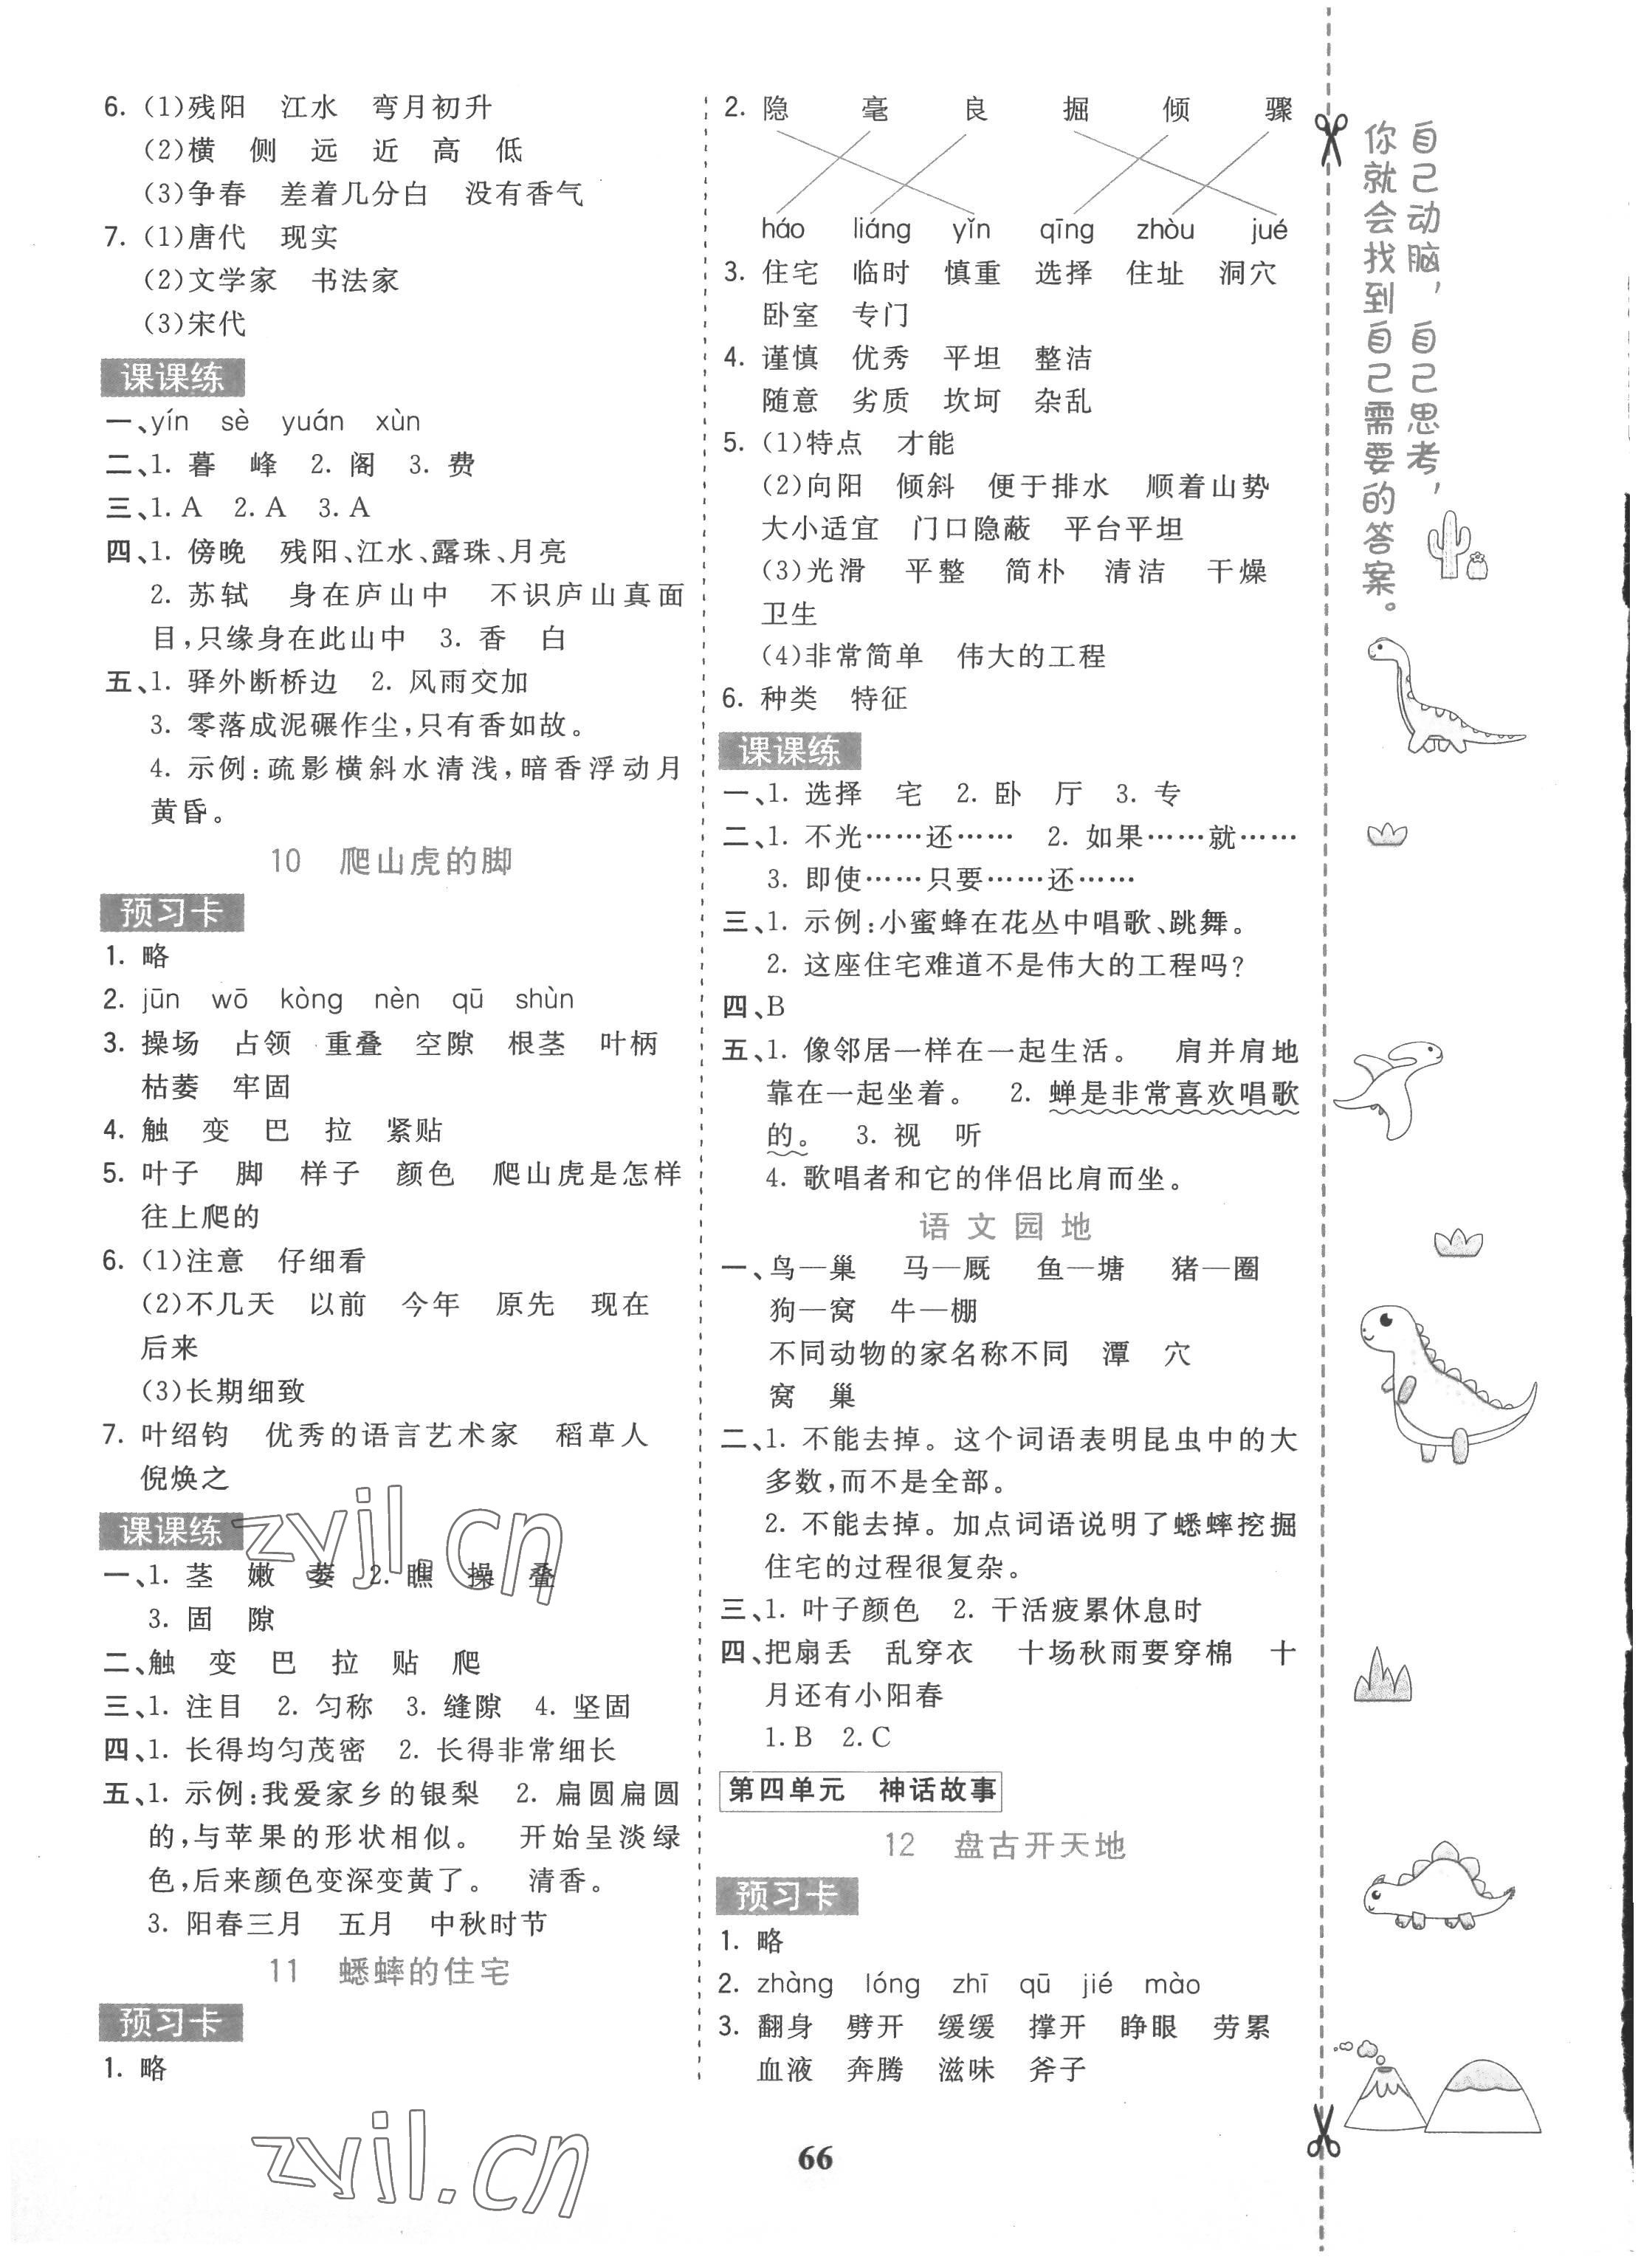 6. (1)残阳 江水 弯月初升
(2)横 侧 远 近 高 低
(3)争春 差着几分白 没有香气
7. (1)唐代 现实
(2)文学家 书法家
(3)宋代
课课练
一、yín sè yuán xùn
二、1. 暮 峰 2. 阁 3. 费
三、1. A 2. A 3. A
四、1. 傍晚 残阳、江水、露珠、月亮
2. 苏轼 身在庐山中 不识庐山真面
目,只缘身在此山中 3. 香 白
五、1. 驿外断桥边 2. 风雨交加
3. 零落成泥碾作尘,只有香如故。
4. 示例:疏影横斜水清浅,暗香浮动月
黄昏。
10 爬山虎的脚
预习卡
1. 略
2. jūn wō kòng nèn qū shùn
3. 操场 占领 重叠 空隙 根茎 叶柄
枯萎 牢固
4. 触 变 巴 拉 紧贴
5. 叶子 脚 样子 颜色 爬山虎是怎样
往上爬的
6. (1)注意 仔细看
(2)不几天 以前 今年 原先 现在
后来
(3)长期细致
7. 叶绍钧 优秀的语言艺术家 稻草人
倪焕之
课课练
一、1. 茎 嫩 萎 2. 瞧 操 叠
3. 固 隙
二、触 变 巴 拉 贴 爬
三、1. 注目 2. 匀称 3. 缝隙 4. 坚固
四、1. 长得均匀茂密 2. 长得非常细长
五、1. 示例:我爱家乡的银梨 2. 扁圆扁圆
的,与苹果的形状相似。 开始呈淡绿
色,后来颜色变深变黄了。 清香。
3. 阳春三月 五月 中秋时节
11 蟋蟀的住宅
预习卡
1. 略
2. 隐 毫 良 掘 倾 骤
háo liáng yǐn qīng zhòu jué
3. 住宅 临时 慎重 选择 住址 洞穴
卧室 专门
4. 谨慎 优秀 平坦 整洁
随意 劣质 坎坷 杂乱
5. (1)特点 才能
(2)向阳 倾斜 便于排水 顺着山势
大小适宜 门口隐蔽 平台平坦
(3)光滑 平整 简朴 清洁 干燥
卫生
(4)非常简单 伟大的工程
6. 种类 特征
课课练
一、1. 选择 宅 2. 卧 厅 3. 专
二、1. 不光……还…… 2. 如果……就……
3. 即使……只要……还……
三、1. 示例:小蜜蜂在花丛中唱歌、跳舞。
2. 这座住宅难道不是伟大的工程吗?
四、B
五、1. 像邻居一样在一起生活。 肩并肩地
靠在一起坐着。 2. 蝉是非常喜欢唱歌
的。 3. 视 听
4. 歌唱者和它的伴侣比肩而坐。
语文园地
一、鸟—巢 马—厩 鱼—塘 猪—圈
狗—窝 牛—棚
不同动物的家名称不同 潭 穴
窝 巢
二、1. 不能去掉。这个词语表明昆虫中的大
多数,而不是全部。
2. 不能去掉。加点词语说明了蟋蟀挖掘
住宅的过程很复杂。
三、1. 叶子颜色 2. 干活疲累休息时
四、把扇丢 乱穿衣 十场秋雨要穿棉 十
月还有小阳春
1. B 2. C
第四单元 神话故事
12 盘古开天地
预习卡
1. 略
2. zhàng lóng zhī qū jié mào
3. 翻身 劈开 缓缓 撑开 睁眼 劳累
血液 奔腾 滋味 斧子
自己动脑,自己思考,
你就会找到自己需要的答案。
zyjl.cn
zyjl.cn
66